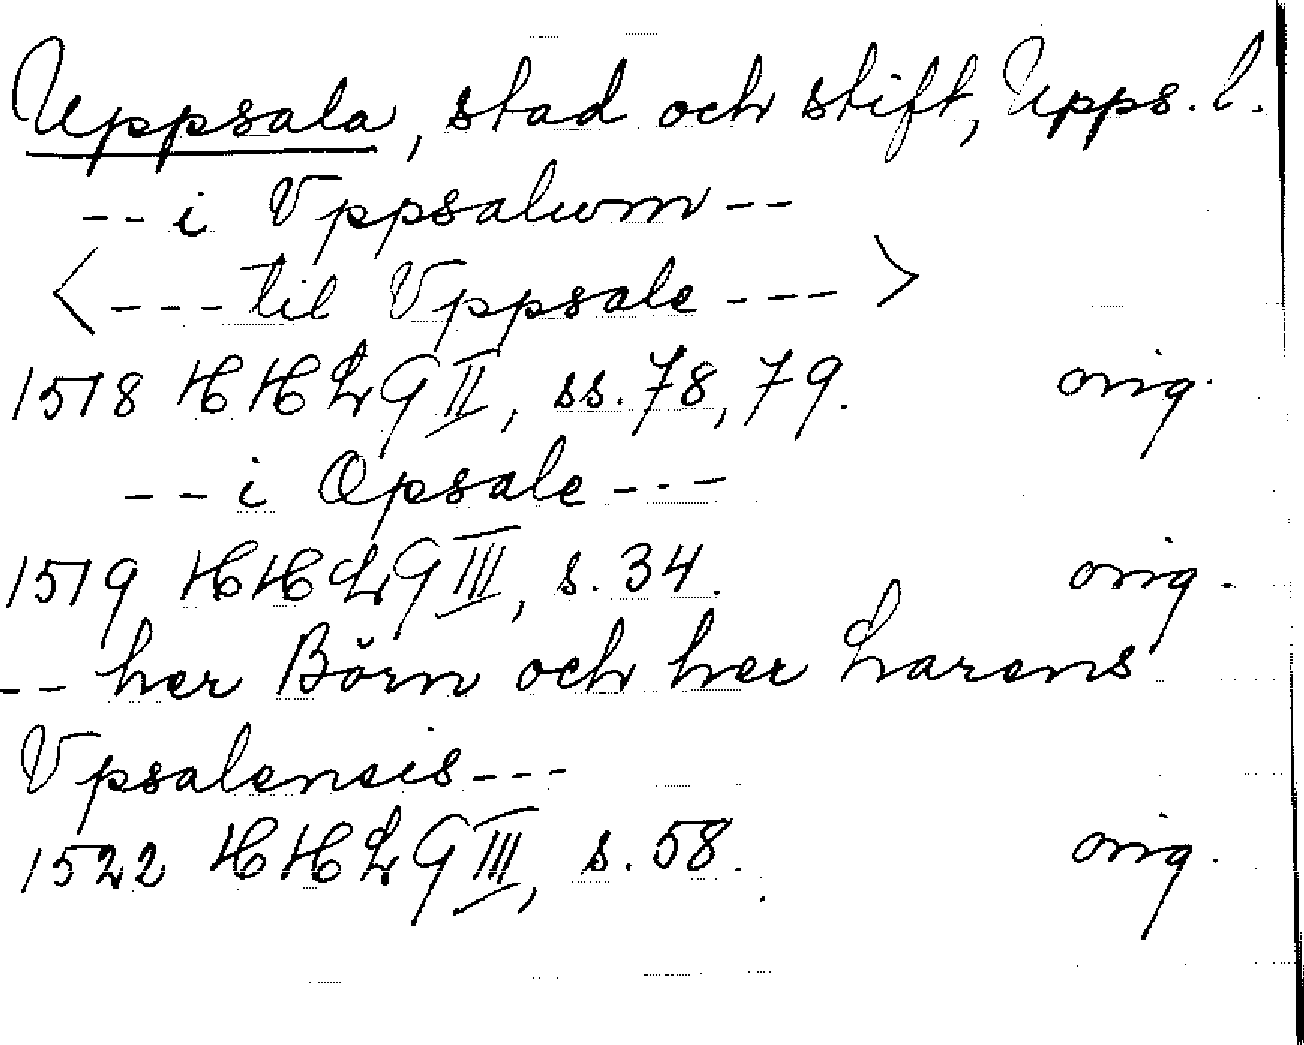 Uppsala, stad och stift, Upps. l.
-- i Vppsalum --
<--- til Vppsale --->
1518 HHLG II, ss. 78, 79. orig.
-- i Opsale ---
1519 HHLG III, s. 34. orig.
-- her Börn och her Larens
Vpsalensis ---
1522 HHLG III, s. 58. orig.